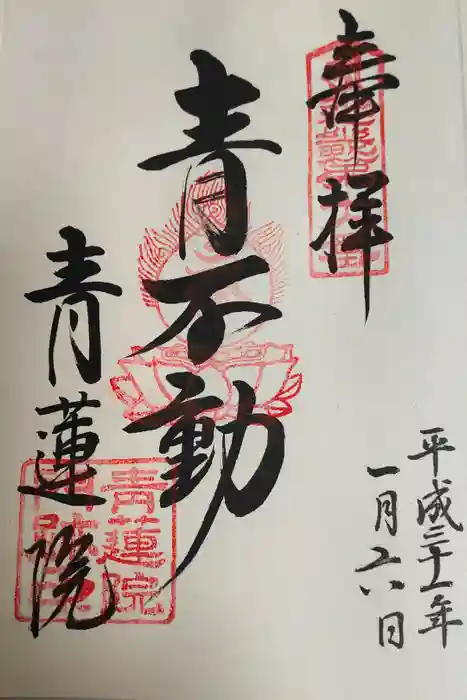 奉拝
平成三十一年
一月六日
青不動
青蓮院
青蓮院